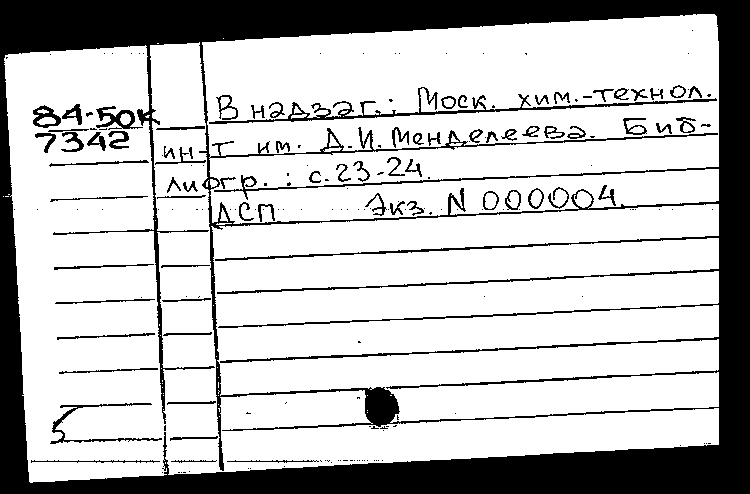 84-50к
7342
В надзаг.: Моск. хим.-технол.
ин-т им. Д.И.Менделеева. Биб-
лиогр.: с.23-24.
ДСП Экз. N 000004.
5